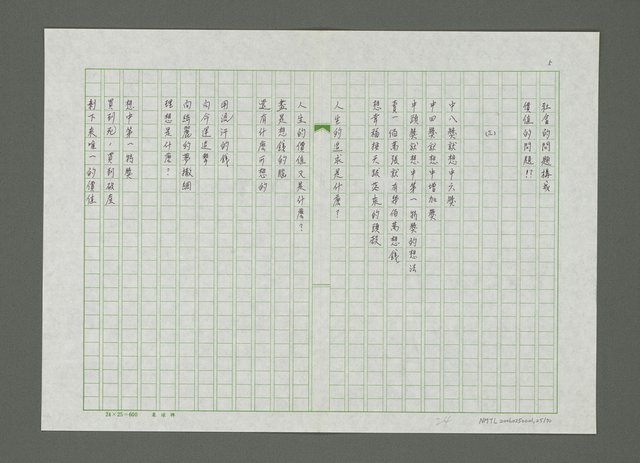 5
社會的問題構成
價值的問題!!
(三)
中八獎就想中六獎
中四獎就想中增加獎
中頭獎就想中第一特獎的想法
賣一佰萬張就有幾佰萬想錢
想有福接天賜落來的頭殼
人生的追求是什麼?
人生的價值又是什麼?
盡是想錢的腦
還有什麼可想的
用流汗的錢
向命運進擊
向綺麗的夢撒網
理想是什麼?
想中第一特獎
買到死,買到破產
剩下來唯一的價值
24×25=600